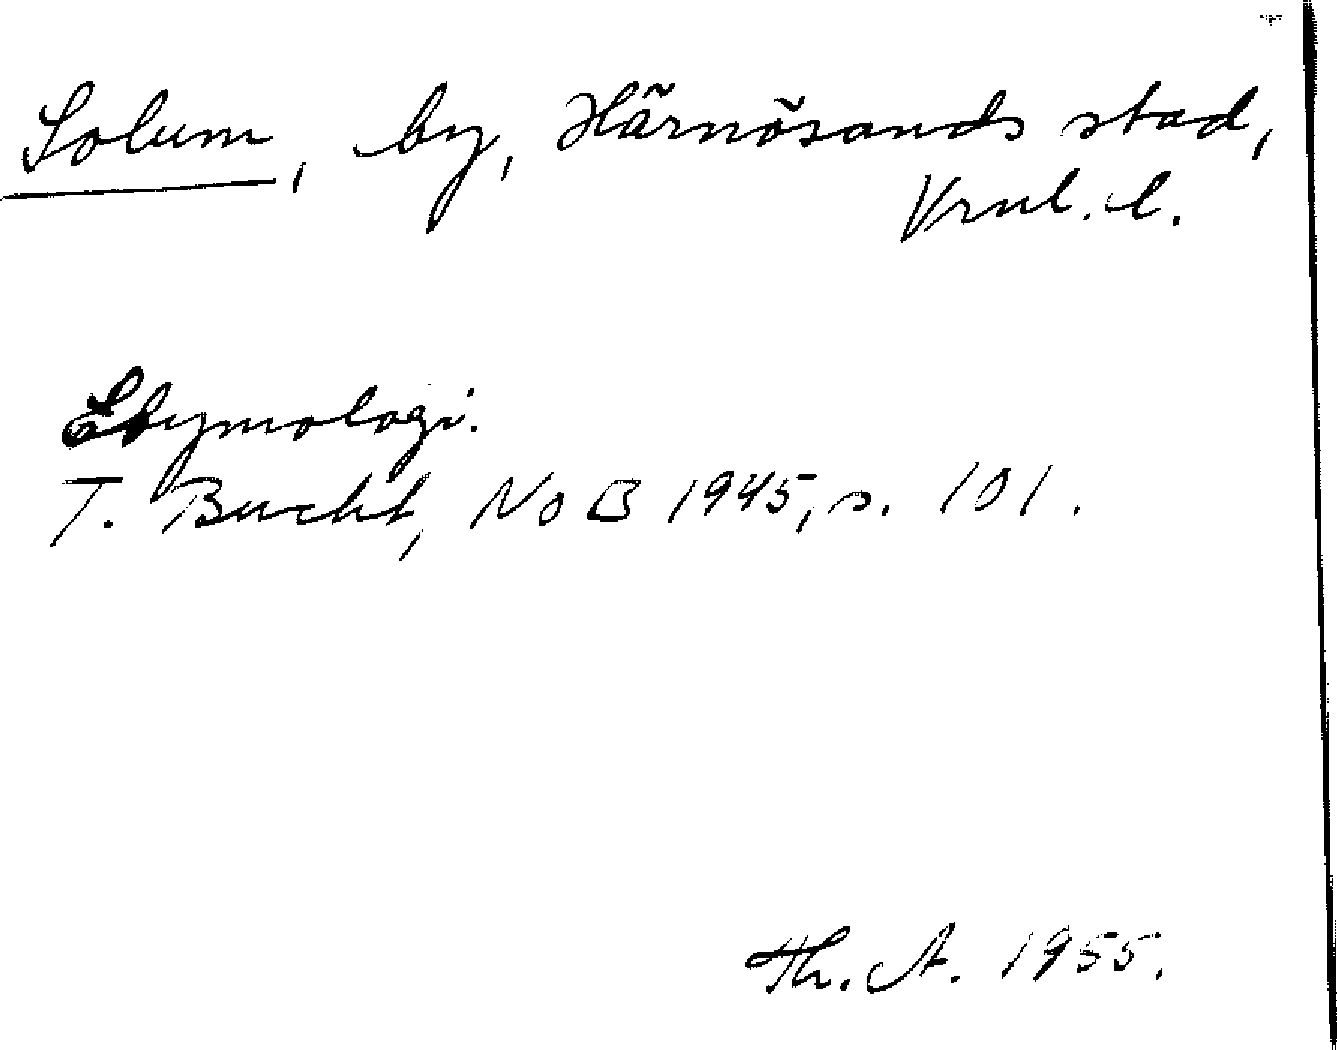 Solum, by, Härnösands stad,
Vrnl. l.
Etymologi.
T. Bucht, NoB 1945, s. 101.
Th. A. 1955.